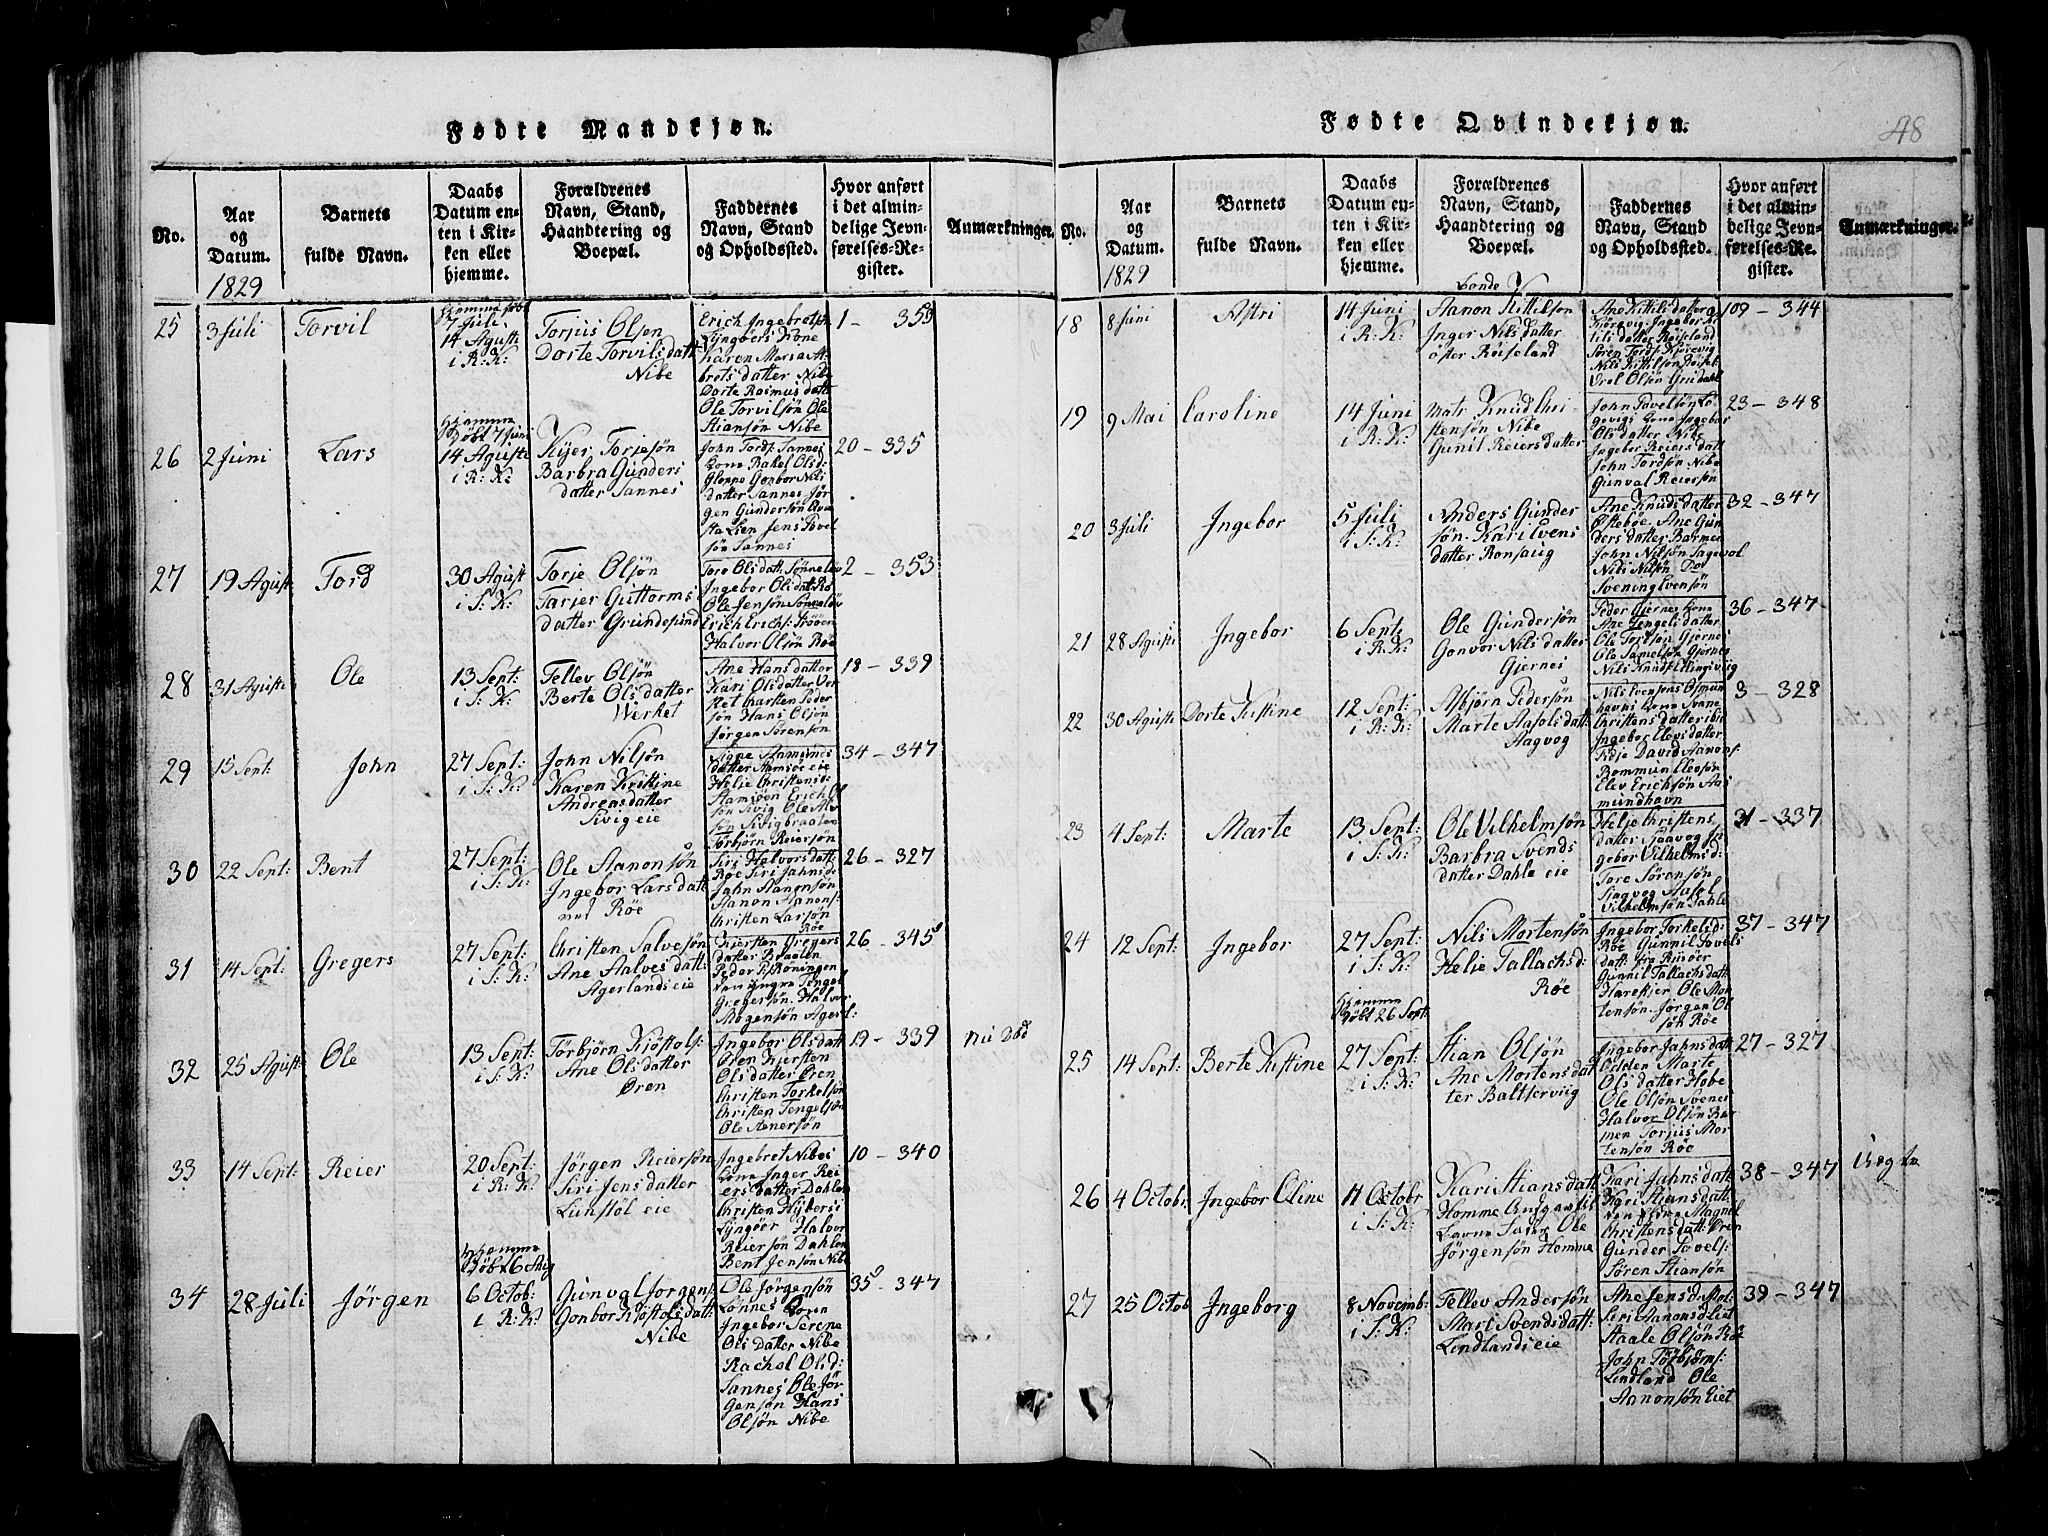 Fødte Mandkjøn.
No.
Aar
og
Datum.
1829
Barnets
fulde Navn.
Daabs
Datum en-
ten i Kir-
ken eller
hjemme.
Forældrenes
Navn, Stand,
Haandtering og
Boepæl.
Faddernes
Navn, Stand
og Opholdssted.
Hvor anført
i det almin-
delige Jevn-
førelses-Re-
gister.
Anmærkninger.
25
3 Juli
Torvil
7 Juli
14 Agusti
i R: K:
Torjus Olsen
Dorte Torvils datt:
Nibe
Erich Ingebretsø
Lÿngöers Kone
Karen Maria At
brets datter Nibe
Dorte Rasmus datt
Ole Torvilsön Ole
Stiansön Nibe
1 - 353
26
2 Juni
Lars
Hjemme
Döbt 7 Juni
14 Agusti
i R: K:
Torjesön
Barbra Gunders
datter Sannes
John Tords: Sannes
Kone Rakel Olsd:
Gloppe Gonbor Nils
datter Sannes Jör
gen Gundersön
Lien Jens Povel
sön Sannes
20 - 335
27
19 Agusti
Tord
30 Agust
i S: K:
Torje Olsön
Tarjer Guttorms
datter Grundesund
Tore Olsdatt: Sönnelöv
Ingebor Olsdatt: Rö
Ole Jensön Sönnelöv
Erich Erichs: Strööen
Halvor Olsön Röe
2 - 353
28
31 Agusti
Ole
13 Sept:
i S: K:
Tellev Olsön
Berte Olsdatter
Werket
Ane Hansdatter
Kari Olsdatter Ver
ket Carsten Peder
sön Hans Olsön
Jörgen Sörensön
18 - 339
29
15 Sept:
John
27 Sept:
i S: K:
John Nilsön
Karen Kristine
Andreasdatter
Sivig eie
Signe Aamunds
datter Aamsöe eie
Helje Christensd:
Aamsöen Erich Ol
sön Sivig Ole Al
sön Sivigbraaten
Torbjörn Reiersön
34 - 347
30
22 Sept:
Bent
27 Sept:
i S: K:
Ole Aanonsön
Ingebor Lars datt
Röe
Siri Halvorsdatt:
Röe Siri Jahnsd:
Jahn Aanonsön
Aanon Aanons:
Christen Larsön
Röe
26 - 327
31
14 Sept:
Gregers
27 Sept:
i S: K:
Christen Salvesön
Ane Aalves datt:
Agerlands eie
Kjersten Gregers
datter Braaten
Peder
Tengel
Gregersön Halvor
Mogensön Agerl:
26 - 345
32
25 Agusti
Ole
13 Sept:
i S: K:
Törbjörn Kjöstols:
Ane Olsdatter
Øren
Ingebor Olsdatt
Øren Kjersten
Olsdatter Øren
Christen Torkelsön
Christen Tengelsön
Ole Abnersön
19 - 339
nu Död
33
14 Sept:
Reier
20 Sept:
i R: K:
Jörgen Reiersön
Siri Jensdatter
Lunstöl eie
Ingebret Nibes
Kone Inger Rei
ersdatter Dahlen
Christen Nÿbers:
Lÿngöer Halvor
Reiersön Dahlen
Bent Jensön Nibe
10 - 340
34
28 Juli
Jörgen
Hjemme
Döbt 6 Aug
6 Octob:
i R: K:
Gunval Jörgens:
Gonbor Kjöstolsdatt:
Nibe
Ole Jörgensön
Lönnes Kone
Ingebor Serene
Olsdatter Nibe
Rachel Olsd:
Sannes Ole Jör
gensön Hans
Olsön Nibe
35 - 347
Fødte Qvindekjøn.
48
No.
Aar
og
Datum.
1829
Barnets
fulde Navn.
Daabs
Datum en-
ten i Kir-
ken eller
hjemme.
Forældrenes
Navn, Stand,
Haandtering og
Boepæl.
Faddernes
Navn, Stand
og Opholdssted.
Hvor anført
i det almin-
delige Jevn-
førelses-Re-
gister.
Anmærkninger.
18
8 Juni
Astri
14 Juni
i R: K:
Bonde
Aanon Kittilsön
Inger Nils datter
öster Röiseland
Ane Kittilsdatter
Kjörvig Ingebor Kit
tils datter Röiseland
Sören Tords: Kjörvig
Nils Kittilsön Röisel:
Urol Olsön Grudahl
109 - 344
19
9 Mai
Caroline
14 Juni
i R: K:
Matr Knud Chri-
stensön Nibe
Gunil Reiersdatter
John Povelsön
Kone Ingebor
Olsdatter Nibe
Ingebor Reiersdatt
John Tordsön Nibe
Gunval Reiersön
23 - 348
20
3 Juli
Ingebor
5 Juli
i S: K:
Anders Gunder
sön. Kari Evens
datter Ronsaug
Ane Knuds datter
Östeböe, Ane Gun
ders datter Barmen
John Nilsön Sagevol
Nils Nilsön Do
Svening Evensön
32 - 347
21
28 Agusti
Ingebor
6 Sept:
i R: K:
Ole Gundersön
Gonvor Nils datter
Gjernes
Peder Gjernes Kone
Ane Tengels datter
Ole Tordsön Gjernes
Ole Samelsön Gjernes
Nils Knuds Ellingsviig
36 - 347
22
30 Agusti
Dorte Kistine
12 Sept:
i R: K:
Asbjörn Pedersön
Marte Aasols datt:
Aagvog
Nils Evensens Osmun
havns Kone Svane
Christensdatter ibi:
Ingebor Elevs datter
David Aanons:
Rommun Elevsön
Elev Erichsön Aas
mundhavn
3 - 328
23
4 Sept:
Marte
13 Sept:
i S: K:
Ole Vilhelmsön
Barbra Svends
datter Dahle eie
Helje Christens
datter Saavog In
gebor Vilhelmsd:
Tore Sörensön
Aasol
Vilhelmsön Dahle
31 - 337
24
12 Sept:
Ingebor
27 Sept:
i S: K:
Nils Mortensön
Helje Tallachsd:
Röe
Ingebor Torkelsd:
Röe Gunnil Povels
datt: fra Risöer
Gunnil Tallachsdatt:
Harekjer Ole Mor
tensön. Jörgen Ol
sön Röe
37 - 347
25
14 Sept:
Berte Kistine
Hjemme
Döbt 26 Sept:
27 Sept:
i S: K:
Stian Olsön
Ane Mortens dat
ter Baltserviig
Ingebor Jahnsdatt:
Odden Marte
Olsdatter Hobe
Ole Olsön Svenes
Halvor Olsön Bar
men Torjus Mor
tensön Röe
27 - 327
26
4 Octobr:
Ingebor Oline
11 Octobr
i S: K:
Kari Stiansdatt
Homme
Ole
Jörgensön Homme
Kari Jahnsdatt:
Kari Stiansdatt:
Magnil
Christensdatt: Øren
Gunder Povels:
Sören Stiansön
38 - 347
Uægte
27
25 Octob
Ingeborg
8 Novemb:
i S: K:
Tellev Andersön
Mari Svendsdatt:
Lindlands eie
Ane Jensd: Mol-
Siri Aanonsd: Eiet
Staale Olsön Rö
John Törbjörns:
Lindland Ole
Aanonsön Eiet
39 - 347